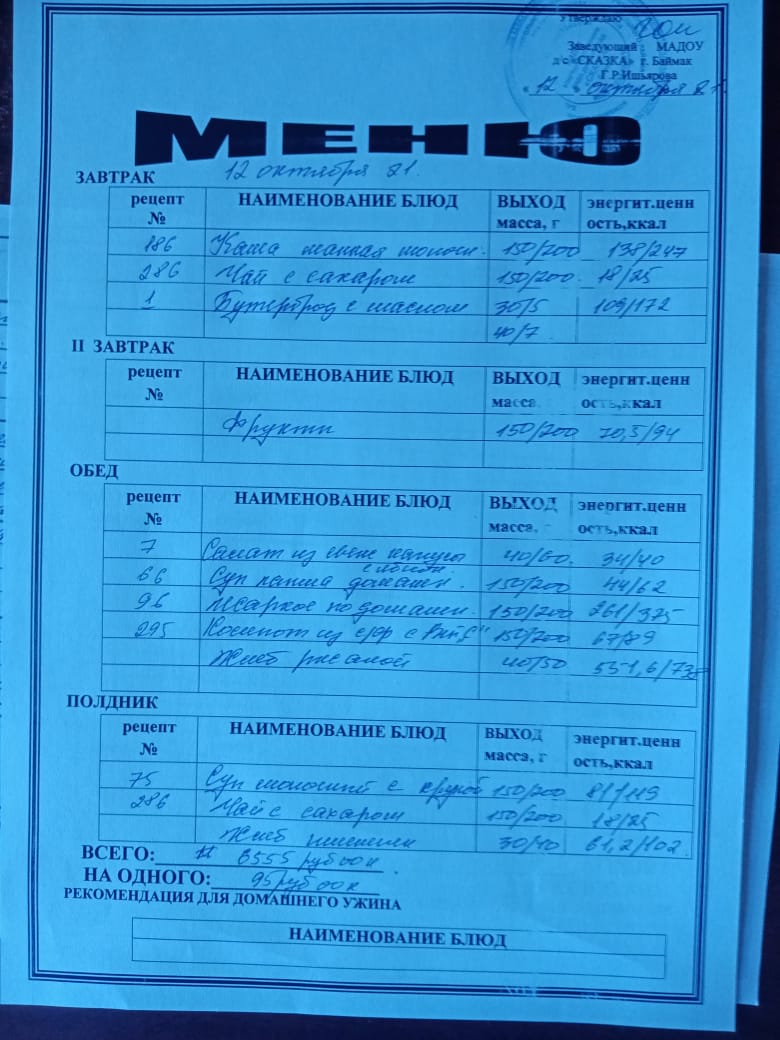 Утверждаю
Заведующий МАДОУ
д/с «СКАЗКА» г. Баймак
Г.Р.Ишьярова
« 12 » октября 21.
МЕНЮ
ЗАВТРАК 12 октября 21.
рецепт № НАИМЕНОВАНИЕ БЛЮД ВЫХОД масса, г энергит.ценн ость,ккал
186 Каша манная молочн. 150/200 138/247
286 Чай с сахаром 150/200 18/25
1 Бутерброд с маслом 30/5 109/172
40/7
II ЗАВТРАК
рецепт № НАИМЕНОВАНИЕ БЛЮД ВЫХОД масса, энергит.ценн ость,ккал
Фрукты 150/200 70,5/94
ОБЕД
рецепт № НАИМЕНОВАНИЕ БЛЮД ВЫХОД масса, г энергит.ценн ость,ккал
7 Салат из свеж капусты 40/60 34/40
66 Суп лапша домашн. 150/200 44/62
96 Жаркое по домашн. 150/200 261/375
295 Компот из с/ф с Вит „С" 150/200 67/89
Хлеб ржаной 40/50 551,6/738
ПОЛДНИК
рецепт № НАИМЕНОВАНИЕ БЛЮД ВЫХОД масса, г энергит.ценн ость,ккал
75 Суп молочный с крупой 150/200 81/119
286 Чай с сахаром 150/200 18/25
Хлеб пшеничн 30/40 61,2/102
ВСЕГО: 6555 руб 00 к
НА ОДНОГО: 95 руб 00 к
РЕКОМЕНДАЦИЯ ДЛЯ ДОМАШНЕГО УЖИНА
НАИМЕНОВАНИЕ БЛЮД